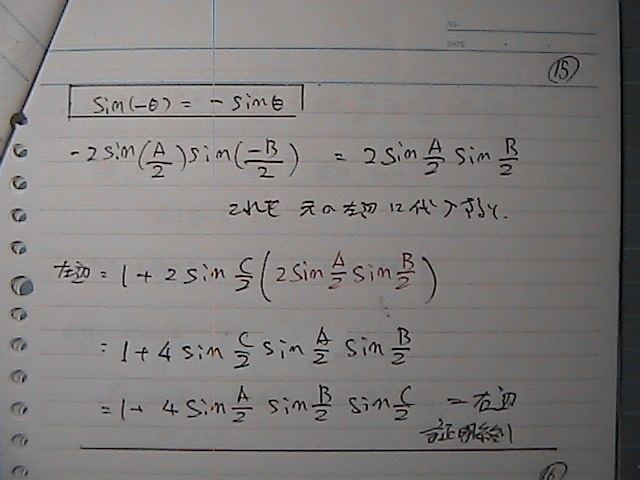 NO.
DATE
⑮
sin(-θ) = - sinθ
-2sin(A/2)sin(-B/2) = 2sin A/2 sin B/2
これを 元の左辺に代入すると.
左辺 = 1 + 2 sin C/2 (2sin A/2 sin B/2)
= 1 + 4 sin C/2 sin A/2 sin B/2
= 1 + 4 sin A/2 sin B/2 sin C/2 = 右辺
証明終り